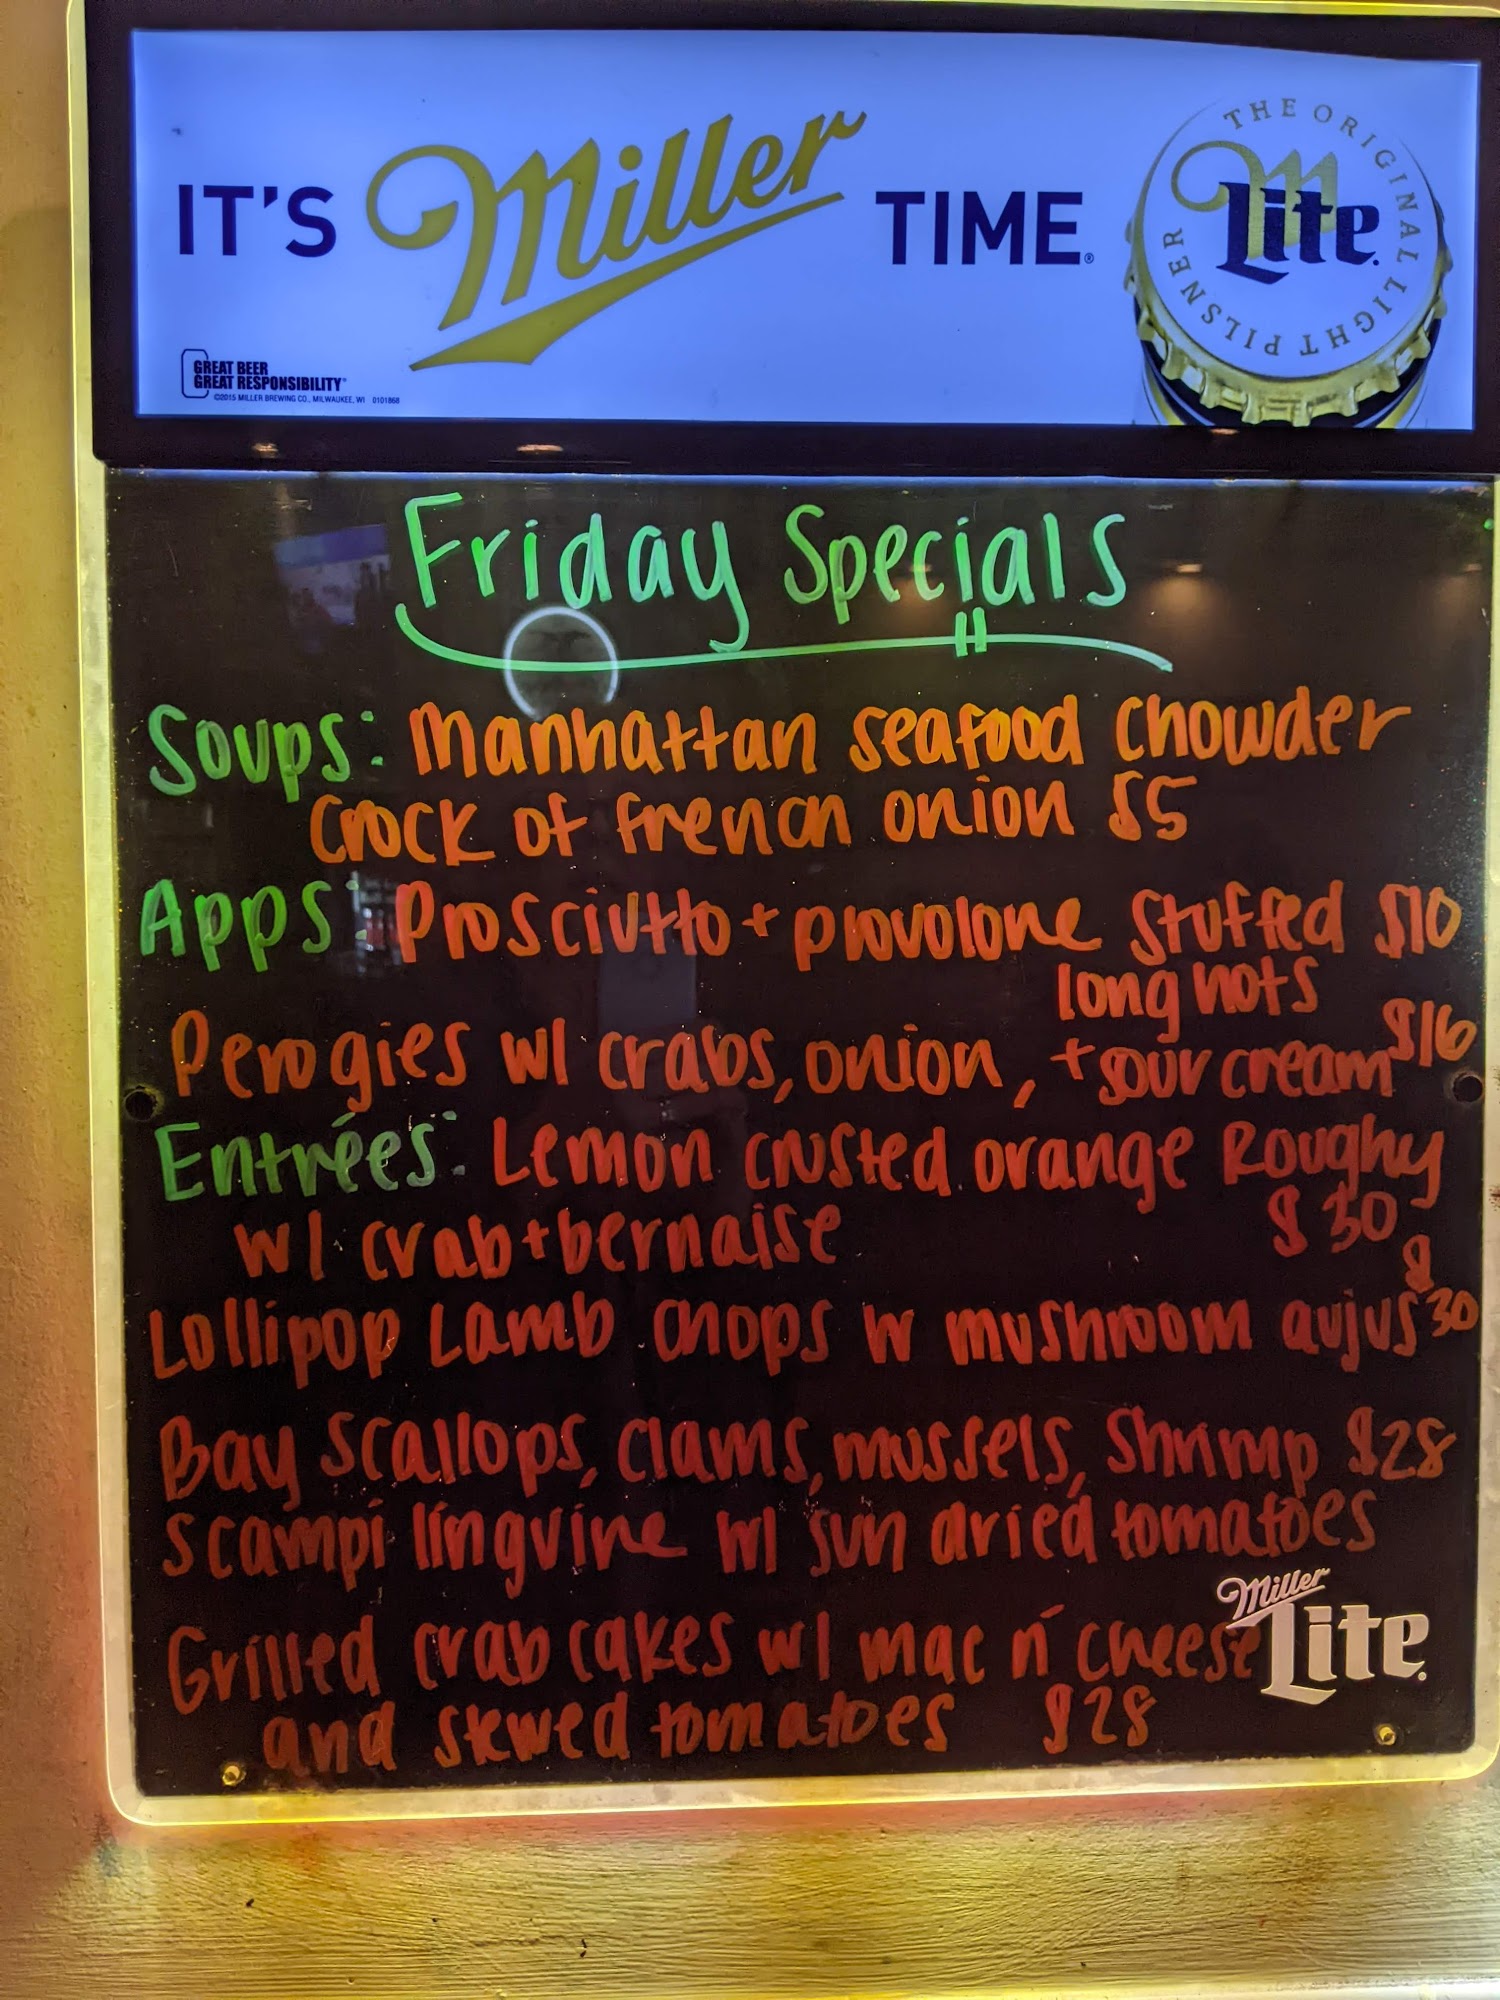 IT'S Miller TIME.®
THE ORIGINAL LIGHT PILSNER
Miller Lite.
GREAT BEER
GREAT RESPONSIBILITY®
©2015 MILLER BREWING CO., MILWAUKEE, WI 0101868
Friday Specials
Soups: Manhattan seafood chowder
Crock of french onion $5
Apps: Prosciutto + provolone stuffed $10
long hots
Perogies w/ crabs, onion, + sour cream $16
Entrées: Lemon crusted orange Roughy
w/ crab + bernaise $30
Lollipop Lamb chops w mushroom aujus $30
Bay scallops, clams, mussels, shrimp $28
scampi linguine w/ sun dried tomatoes
Grilled crab cakes w/ mac n' cheese
and stewed tomatoes $28
Miller
Lite.